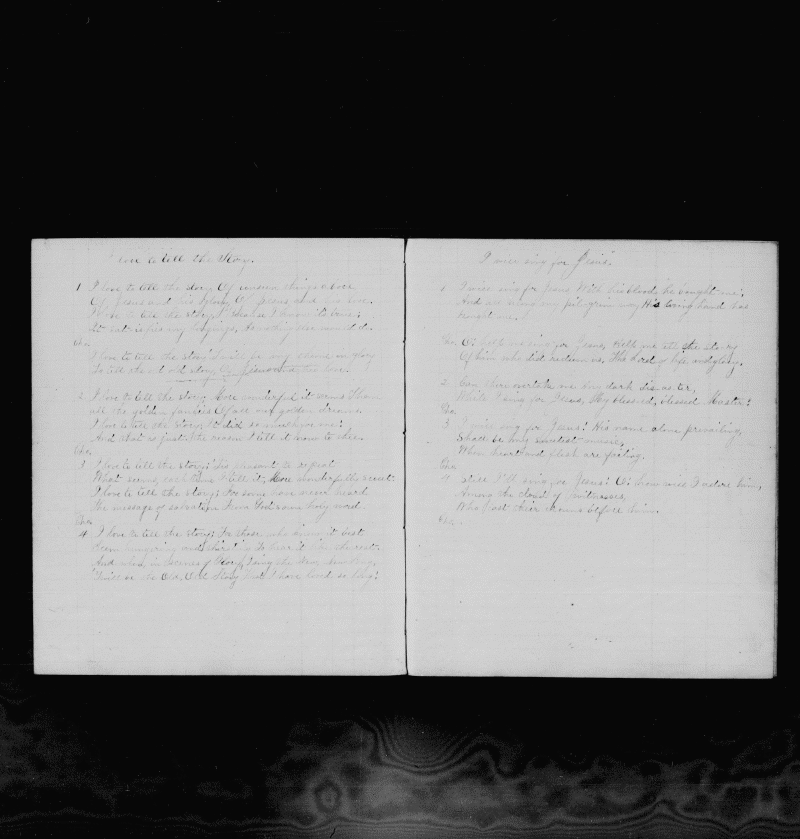 I love to tell the Story.
1 I love to tell the story, Of unseen things above
Of Jesus and his glory, Of Jesus and his love.
I love to tell the story, Because I know its true;
It satisfies my longings, As nothing else would do.
Cho.
I love to tell the story 'Twill be my theme in glory
To tell the old old story Of Jesus and his love.
2. I love to tell the story, More wonderful it seems Than
all the golden fancies Of all our golden dreams.
I love to tell the story, It did so much for me!
And that is just the reason I tell it now to thee.
Cho.
3 I love to tell the story; 'Tis pleasant to repeat
What seems, each time I tell it, More wonderfully sweet.
I love to tell the story; For some have never heard
The message of salvation From God's own holy word.
Cho.
4 I love to tell the story; For those who know it best
Seem hungering and thirsting To hear it like the rest.
And when, in scenes of Glory, I sing the New, New Song,
'Twill be the Old, Old Story That I have loved so long!
I will sing for Jesus.
1 I will sing for Jesus With his blood he bought me;
And all along my pilgrim way His loving hand has
brought me.
Cho. O! help me sing for Jesus, Help me tell the story
Of him who did redeem us, The Lord of life and glory.
2. Can there overtake me Any dark disaster,
While I sing for Jesus, My blessed, blessed Master?
Cho.
3 I will sing for Jesus! His name alone prevailing,
Shall be my sweetest music,
When heart and flesh are failing.
Cho.
4 Still I'll sing for Jesus! O! how will I adore him,
Among the cloud of witnesses,
Who cast their crowns before him.
Cho.